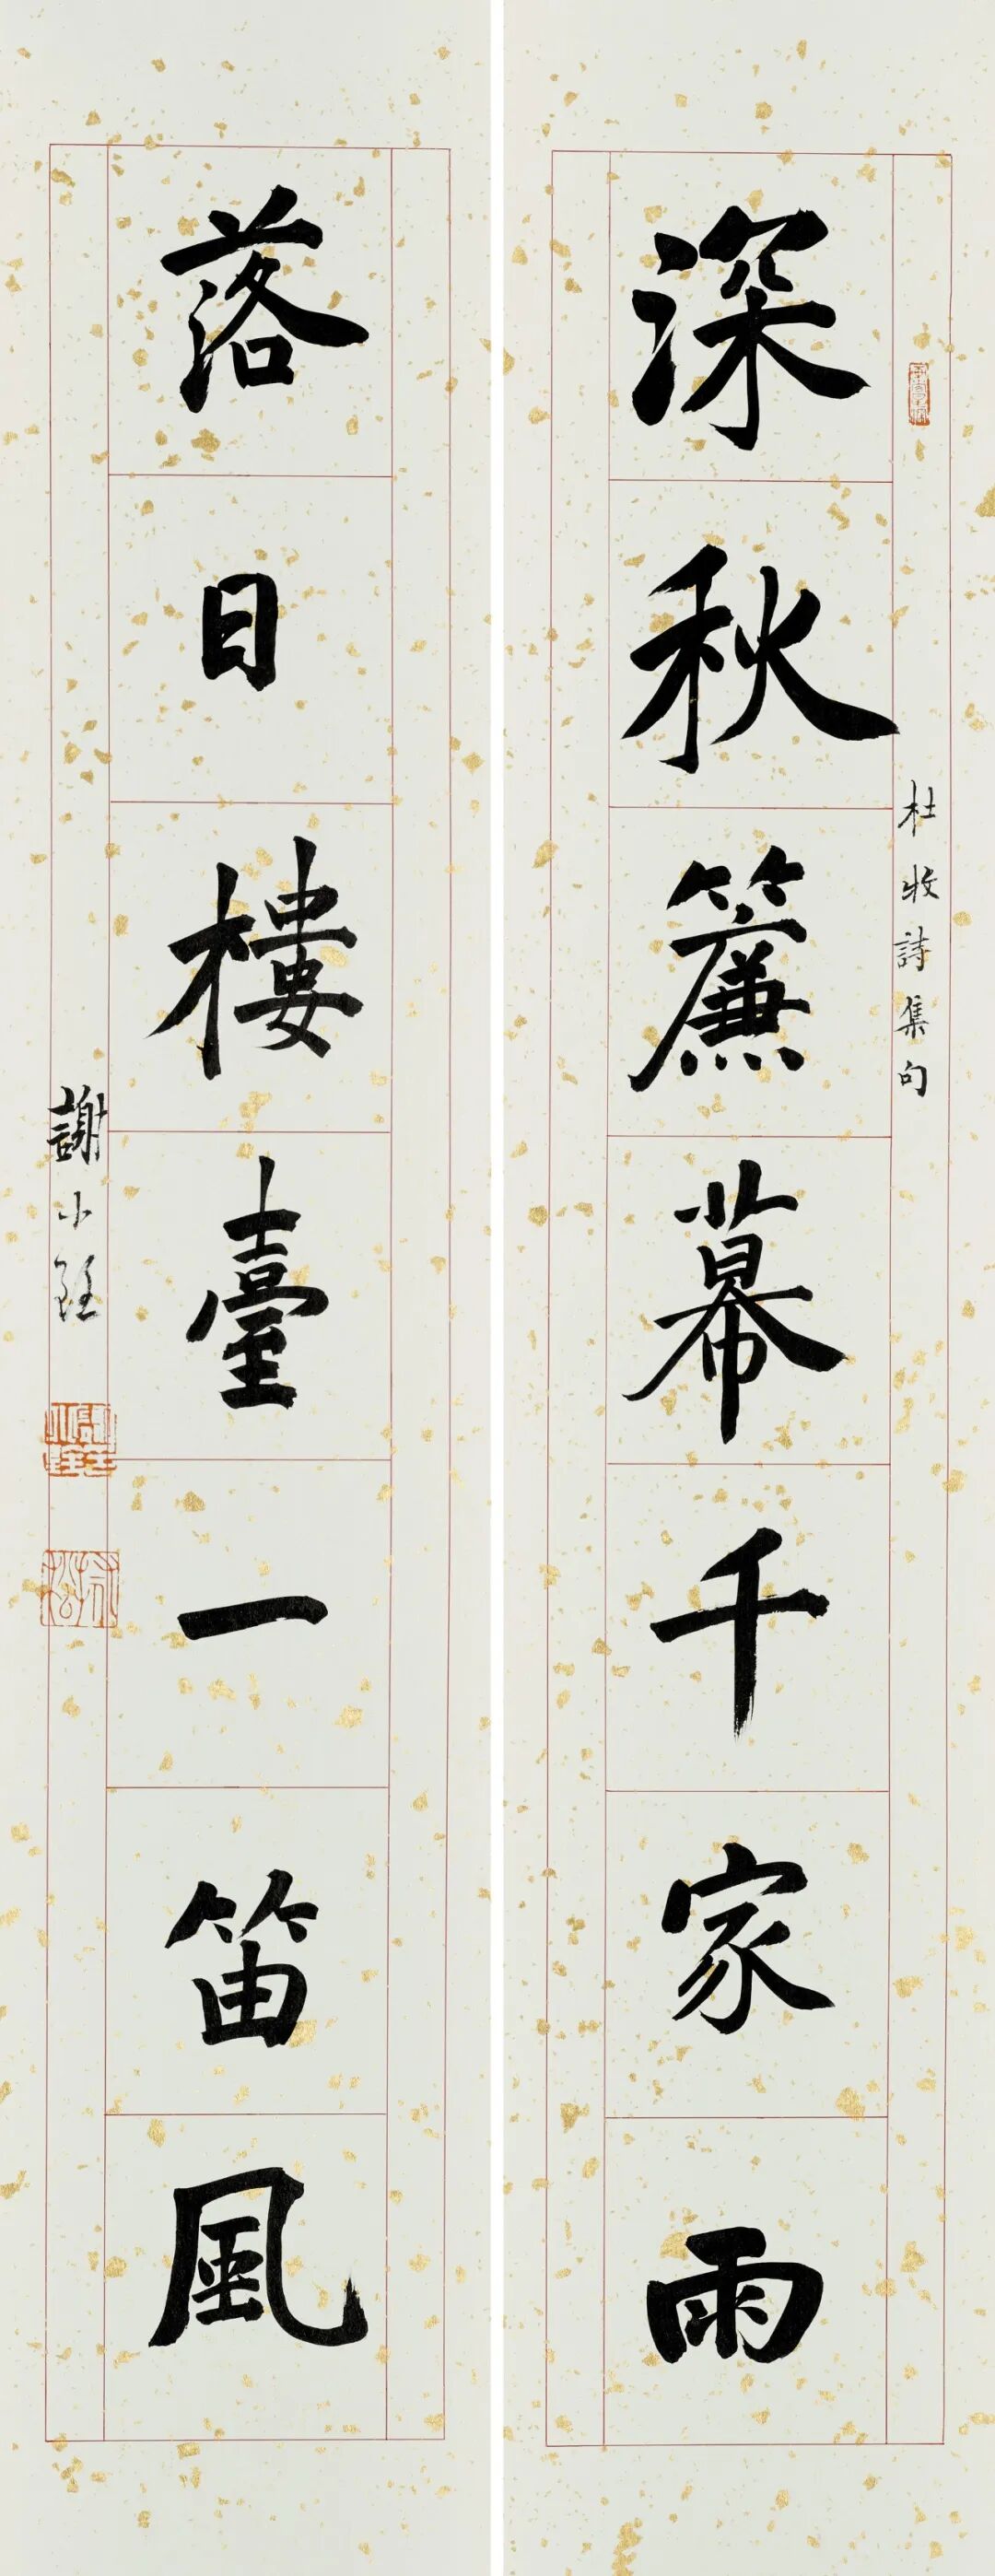 深秋簾幕千家雨
杜牧詩集句
落日樓臺一笛風
謝小銓